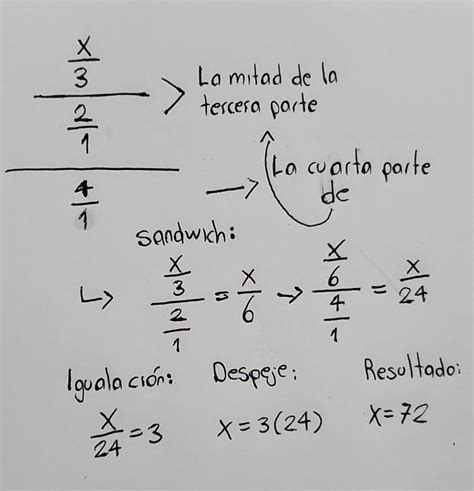 x/3
2/1
4/1
> La mitad de la
tercera parte
→ La cuarta parte
de
Sandwich:
↳ (x/3)/(2/1) = x/6 → (x/6)/(4/1) = x/24
Igualación: Despeje: Resultado:
x/24 = 3 x = 3(24) x = 72